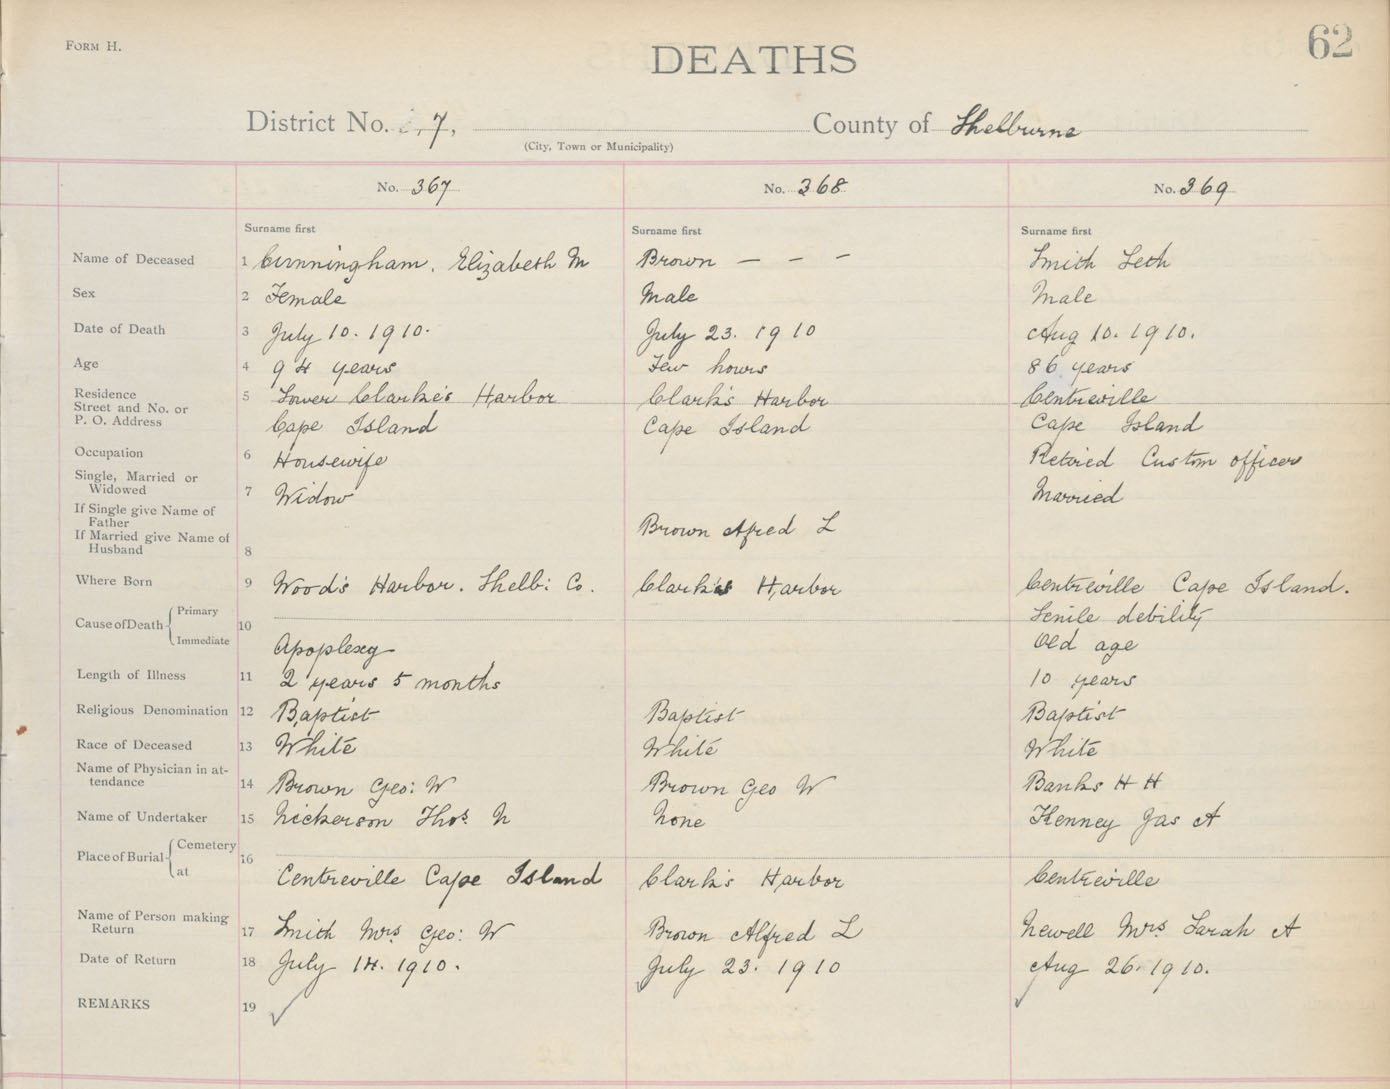 FORM H.
62
DEATHS
District No. 7, County of Shelburne
(City, Town or Municipality)
No. 367 No. 368 No. 369
Surname first Surname first Surname first
Name of Deceased 1 Cunningham, Elizabeth M Brown — — — Smith Seth
Sex 2 Female Male Male
Date of Death 3 July 10. 1910. July 23. 1910 Aug 10. 1910.
Age 4 94 years Few hours 86 years
Residence 5 Lower Clarke's Harbor Clark's Harbor Centreville
Street and No. or
P. O. Address Cape Island Cape Island Cape Island
Occupation 6 Housewife Retired Custom officer
Single, Married or
Widowed 7 Widow Married
If Single give Name of
Father Brown Afred L
If Married give Name of
Husband 8
Where Born 9 Wood's Harbor. Shelb: Co. Clark's Harbor Centreville Cape Island.
Cause of Death Primary 10 Senile debility
Immediate Apoplexy Old age
Length of Illness 11 2 years 5 months 10 years
Religious Denomination 12 Baptist Baptist Baptist
Race of Deceased 13 White White White
Name of Physician in at-
tendance 14 Brown Geo: W Brown Geo W Banks H H
Name of Undertaker 15 Nickerson Thos. N None Kenney Jas A
Place of Burial Cemetery 16
at Centreville Cape Island Clark's Harbor Centreville
Name of Person making
Return 17 Smith Mrs Geo: W Brown Alfred L Newell Mrs Sarah A
Date of Return 18 July 14. 1910. July 23. 1910 Aug 26. 1910.
REMARKS 19